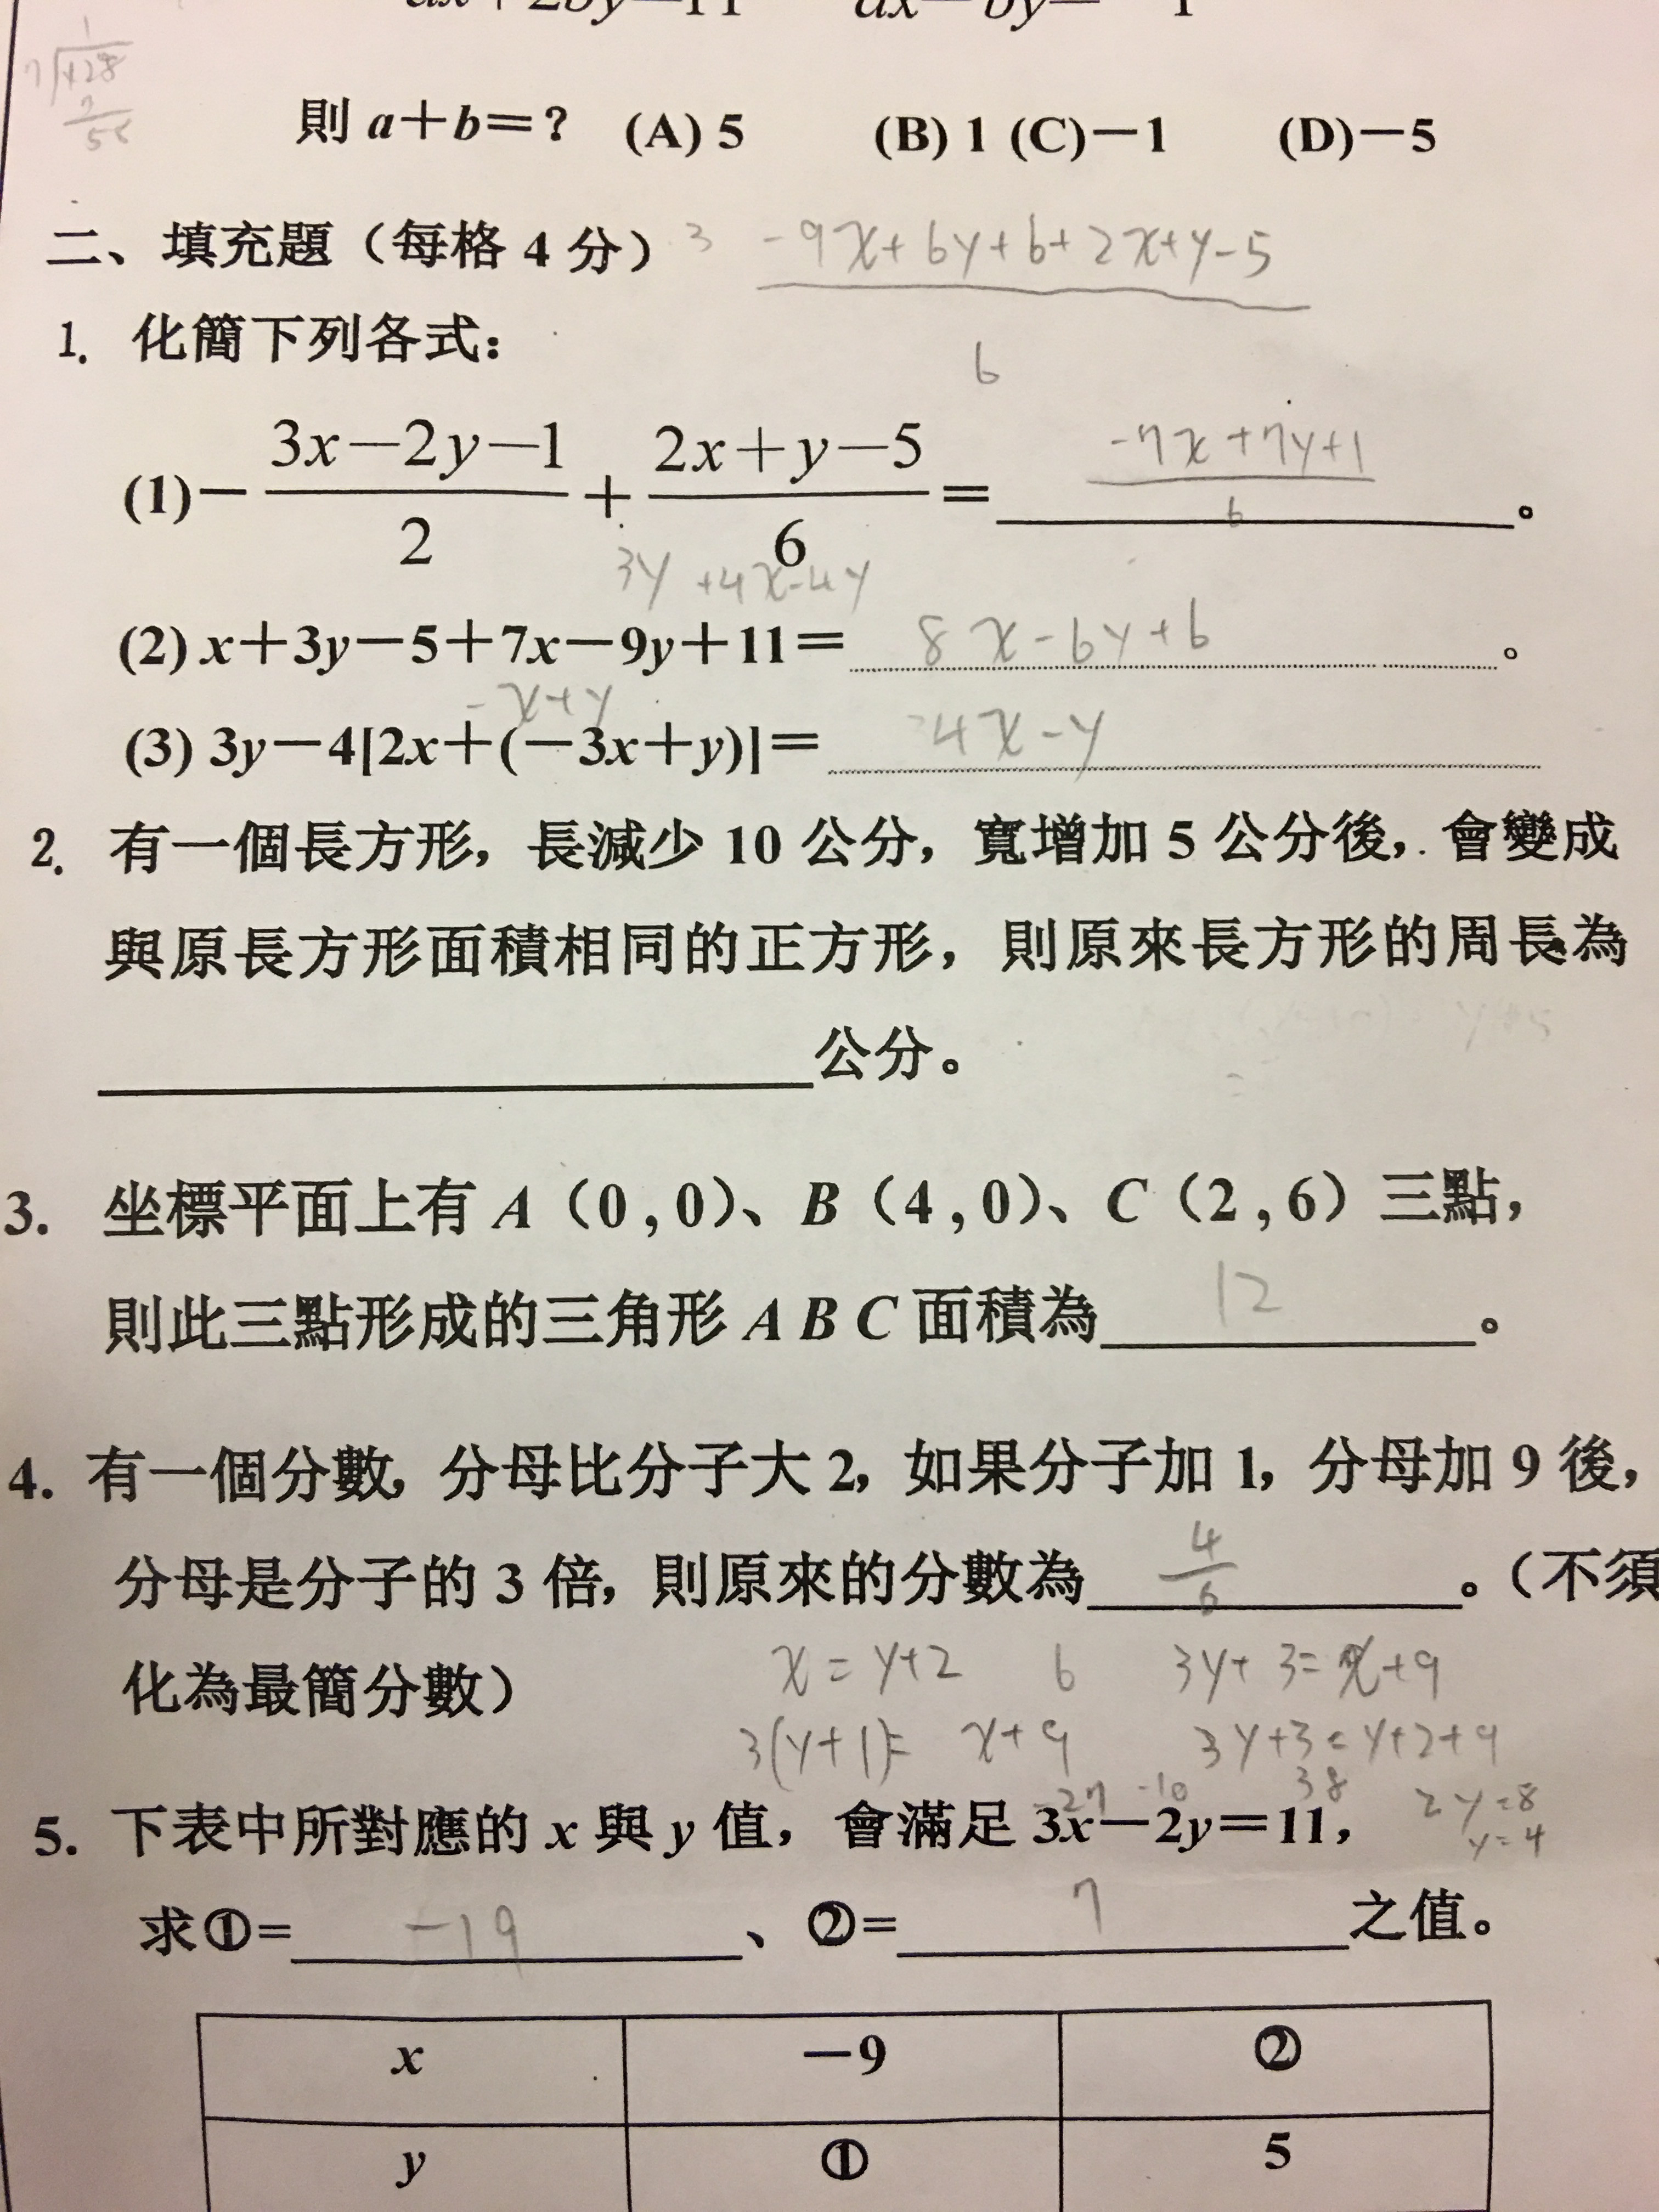 則 a＋b＝？ (A) 5 (B) 1 (C)－1 (D)－5
二、填充題（每格 4 分） 3 -9x+6y+6+2x+y-5
6
1. 化簡下列各式：
(1)－(3x－2y－1)/2＋(2x＋y－5)/6＝ (-7x+7y+1)/6 。
3y +4x-4y
(2) x＋3y－5＋7x－9y＋11＝ 8x-6y+6 。
-x+y
(3) 3y－4[2x＋(－3x＋y)]＝ 4x-y
2. 有一個長方形，長減少 10 公分，寬增加 5 公分後，會變成
與原長方形面積相同的正方形，則原來長方形的周長為
公分。
3. 坐標平面上有 A（0 , 0）、B（4 , 0）、C（2 , 6）三點，
則此三點形成的三角形 A B C 面積為 12 。
4. 有一個分數，分母比分子大 2，如果分子加 1，分母加 9 後，
分母是分子的 3 倍，則原來的分數為 4/6 。（不須
化為最簡分數） x=y+2 6 3y+3=x+9
3(y+1)= x+9 3y+3=y+2+9
-27 -10 38 2y=8
y=4
5. 下表中所對應的 x 與 y 值，會滿足 3x－2y＝11，
求①＝ -19 、②＝ 7 之值。
x －9 ②
y ① 5